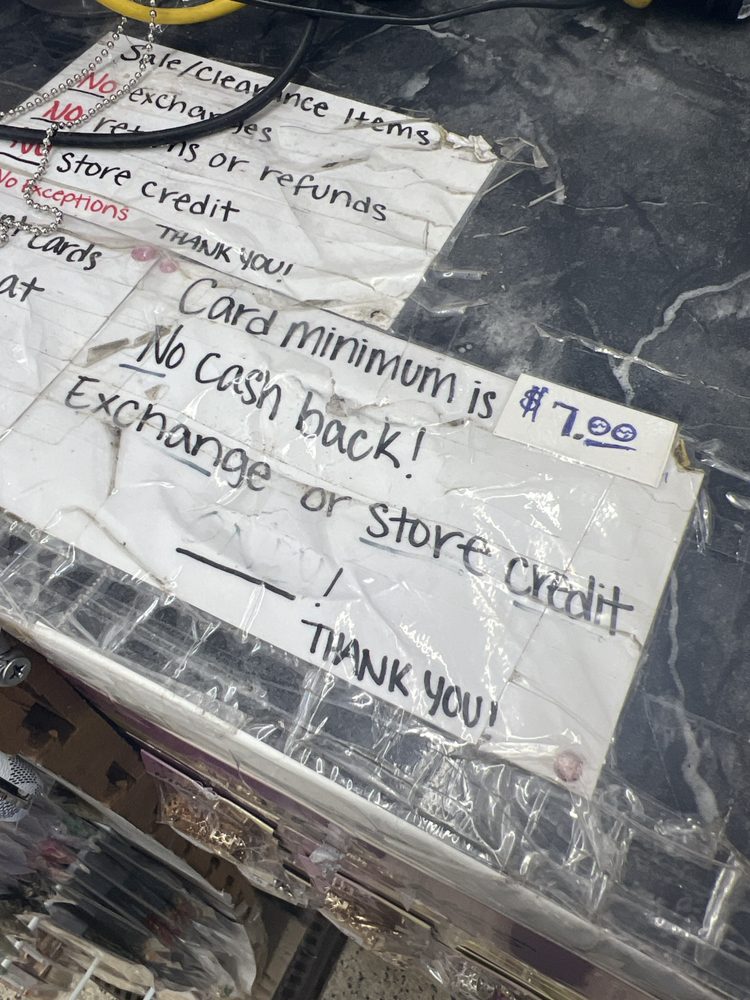 Sale/clearance Items
No exchanges
No returns or refunds
No store credit
No exceptions
THANK YOU!
cards
at
Card minimum is $7.00
No cash back!
Exchange or store credit
!
THANK YOU!